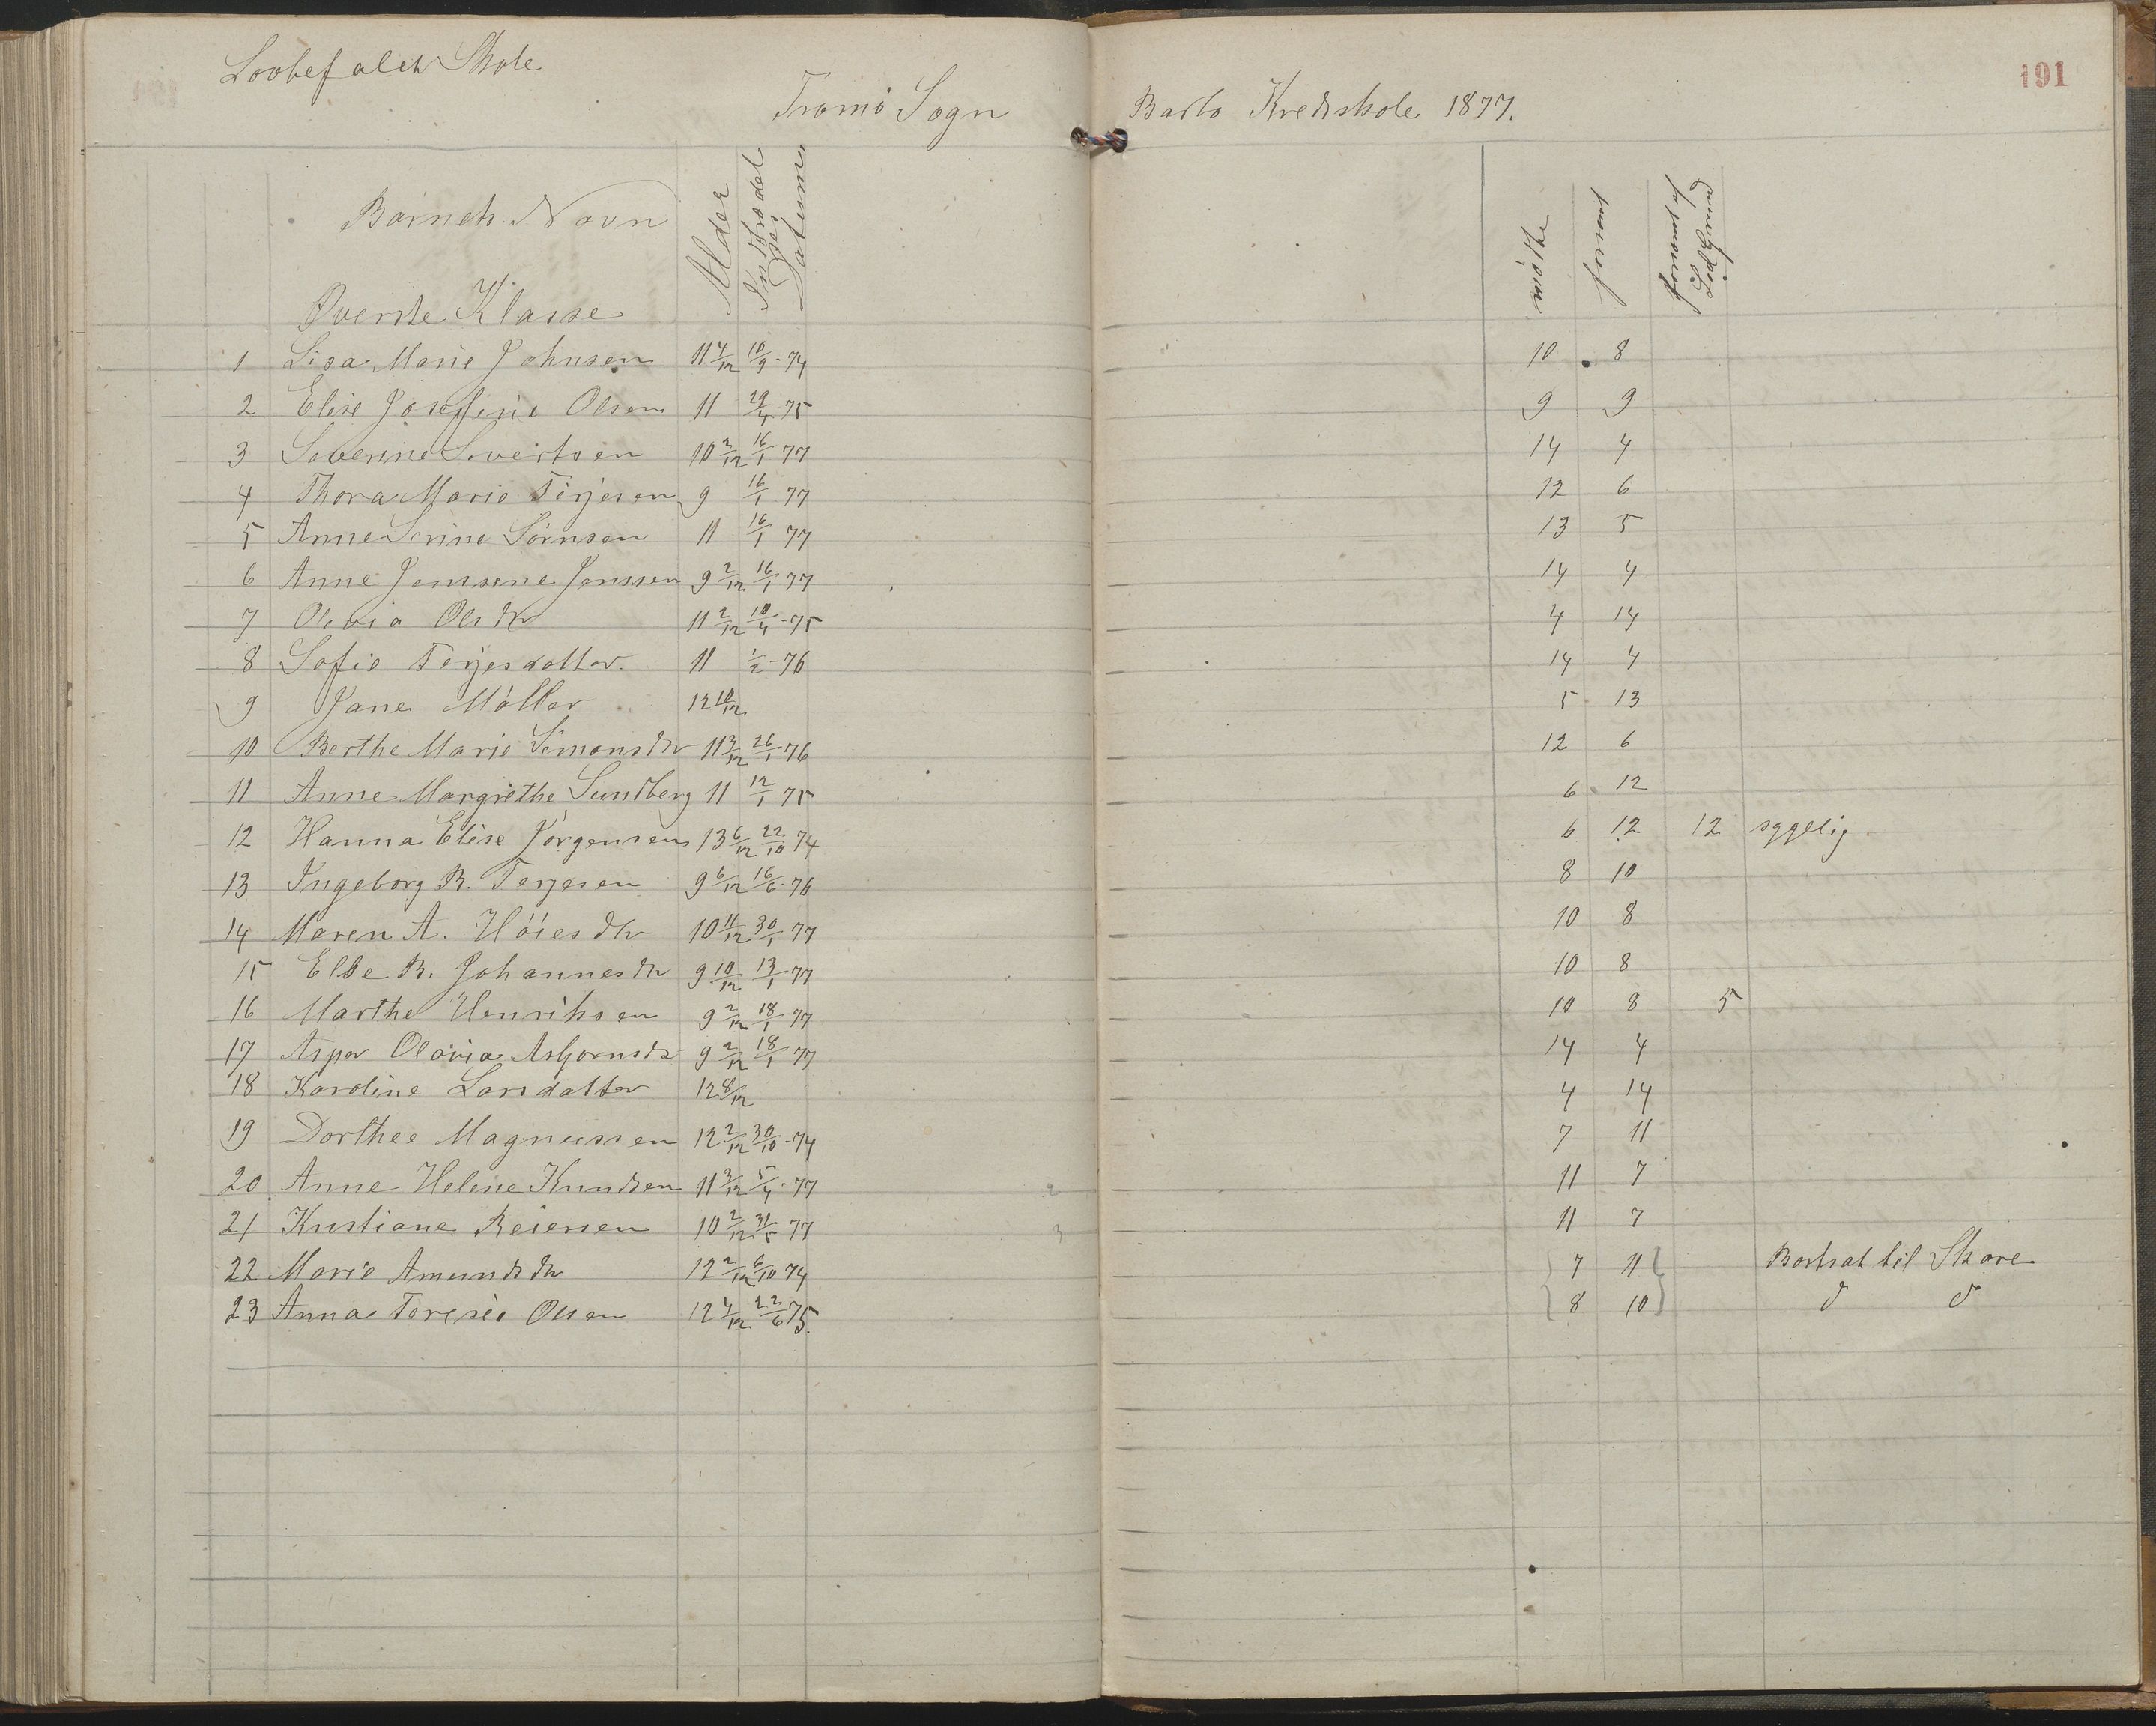 Lovbefalet Skole
191
Tromø Sogn Barbo Kredsskole 1877.
Barnets Navn Alder Indtrædelses Datum mødte forsømt forsømt af Lovl Grund
Øverste Klasse
1 Lisa Marie Johnsen 11 4/12 10/9-74 10 8
2 Elise Josefine Olsen 11 29/4 75 9 9
3 Severine Sivertsen 10 2/12 16/1 77 14 4
4 Thora Marie Terjesen 9 16/1 77 12 6
5 Anne Serine Sörnsen 11 16/1 77 13 5
6 Anne Jenssene Jenssen 9 2/12 16/1 77 14 4
7 Olevia Olsdtr 11 2/12 10/4-75 4 14
8 Sofie Terjesdatter. 11 1/2-76 14 4
9 Jane Möller 12 10/12 5 13
10 Berthe Marie Simonsdtr 11 3/12 26/1 76 12 6
11 Anne Margrethe Sundberg 11 12/1 75 6 12
12 Hanna Elise Jörgensen 13 6/12 22/10 74 6 12 12 sygelig
13 Ingeborg B. Terjesen 9 6/12 16/6-76 8 10
14 Maren A. Höiesdtr 10 11/12 30/1 77 10 8
15 Elbe B. Johannesdtr 9 10/12 13/1 77 10 8
16 Marthe Henriksen 9 2/12 18/1 77 10 8 5
17 Asper Olavia Asbjornsdtr 9 2/12 18/1 77 14 4
18 Karoline Larsdatter 12 8/12 4 14
19 Dorthee Magnussen 12 2/12 30/10-74 7 11
20 Anne Helene Knudsen 11 3/12 5/4-77 2 11 7
21 Kristiane Reiersen 10 2/12 31/5 77 3 11 7
22 Marie Amundsdtr 12 2/12 6/10 74 7 11 Bortsat til Skare
23 Anna Teresie Olsen 12 4/12 22/6 75. 8 10 d d